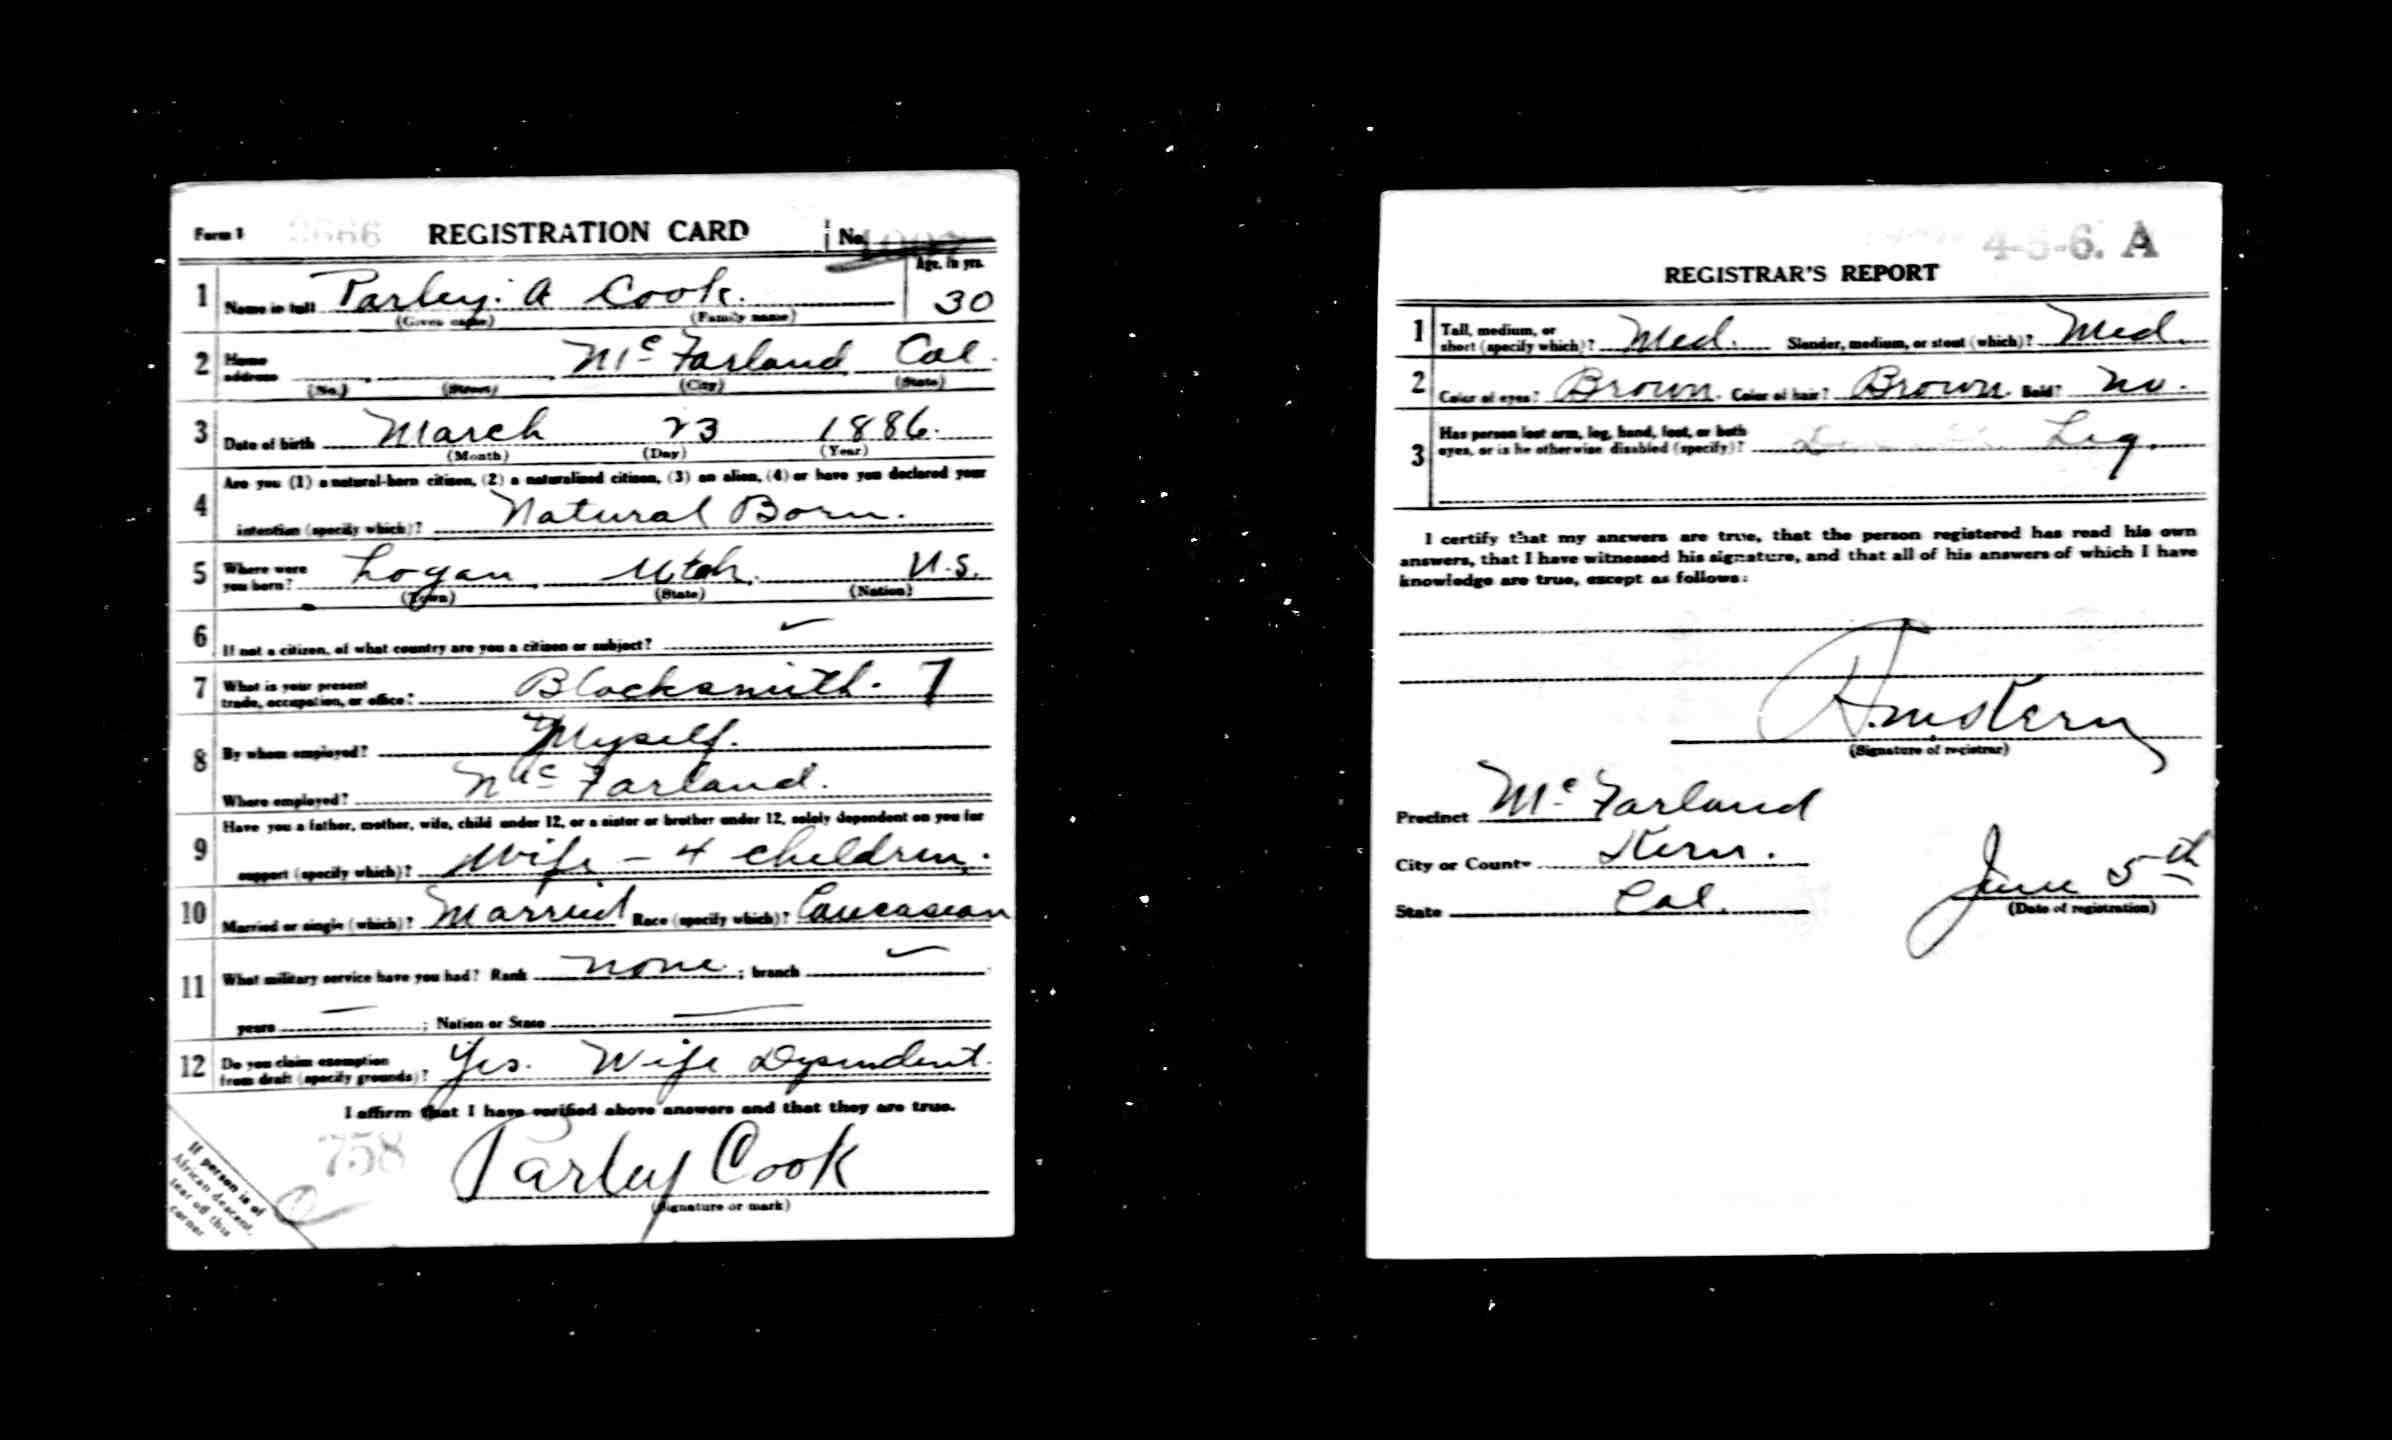 Form 1 3666 REGISTRATION CARD No.
Age, in yrs.
1 Name in full Parley. A Cook. 30
(Given name) (Family name)
2 Home address McFarland Cal.
(No.) (Street) (City) (State)
3 Date of birth March 23 1886.
(Month) (Day) (Year)
4 Are you (1) a natural-born citizen, (2) a naturalized citizen, (3) an alien, (4) or have you declared your
intention (specify which)? Natural Born.
5 Where were you born? Logan, Utah. U.S.
(Town) (State) (Nation)
6 If not a citizen, of what country are you a citizen or subject? ✓
7 What is your present trade, occupation, or office? Blacksmith. 7
8 By whom employed? Myself.
Where employed? McFarland.
9 Have you a father, mother, wife, child under 12, or a sister or brother under 12, solely dependent on you for
support (specify which)? Wife – 4 children.
10 Married or single (which)? Married Race (specify which)? Caucasian
11 What military service have you had? Rank none; branch ✓
years —; Nation or State —
12 Do you claim exemption from draft (specify grounds)? Yes. Wife Dependent.
I affirm that I have verified above answers and that they are true.
758
Parley Cook
(Signature or mark)
If person is of
African descent,
tear off this
corner
4-5-6. A
REGISTRAR'S REPORT
1 Tall, medium, or short (specify which)? Med. Slender, medium, or stout (which)? Med.
2 Color of eyes? Brown. Color of hair? Brown. Bald? No.
3 Has person lost arm, leg, hand, foot, or both
eyes, or is he otherwise disabled (specify)? Leg.
I certify that my answers are true, that the person registered has read his own
answers, that I have witnessed his signature, and that all of his answers of which I have
knowledge are true, except as follows:
(Signature of registrar)
Precinct McFarland
City or County Kern.
State Cal.
June 5th
(Date of registration)